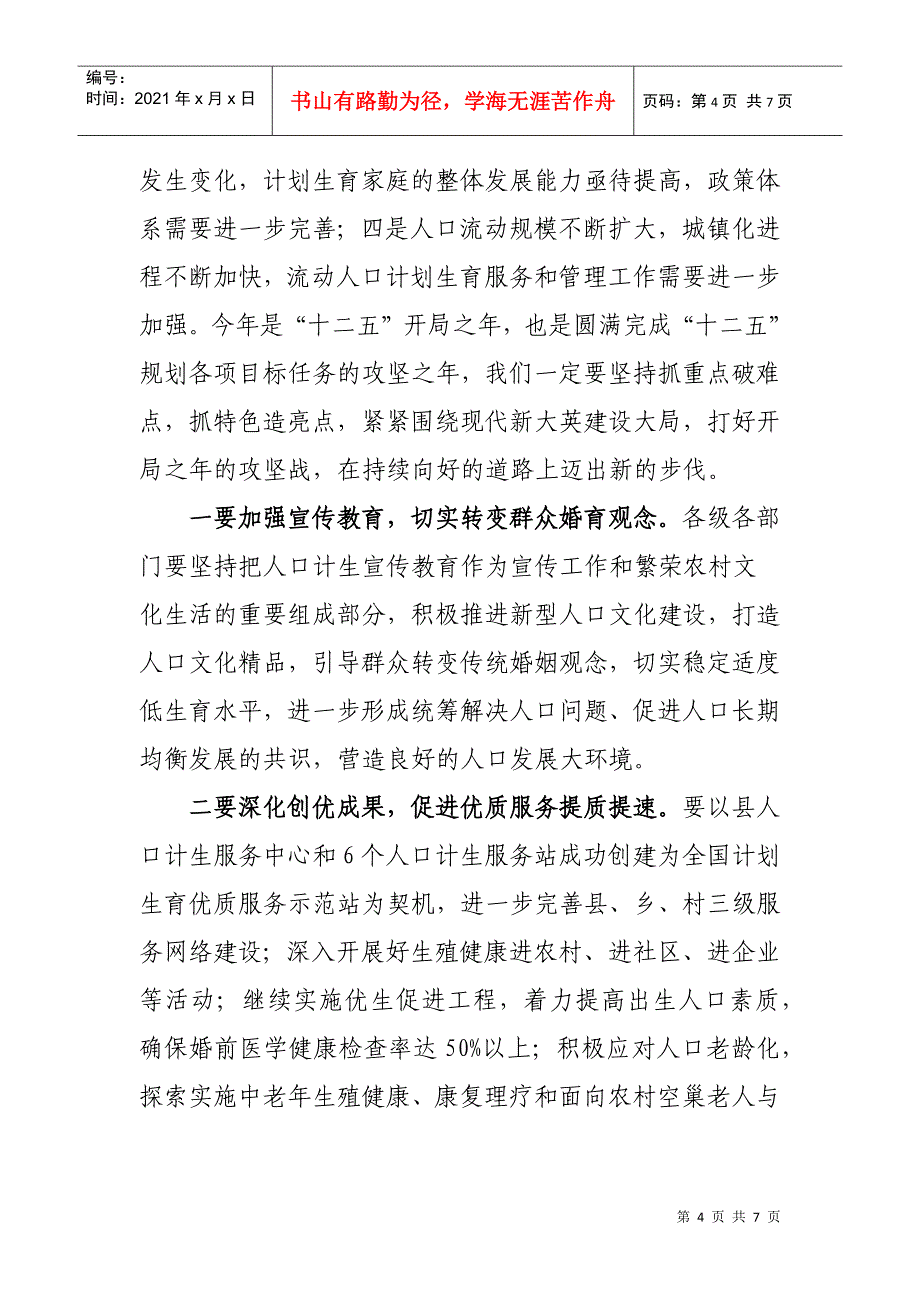 编号：
时间：2021年x月x日
书山有路勤为径，学海无涯苦作舟
页码：第4页 共7页
发生变化，计划生育家庭的整体发展能力亟待提高，政策体
系需要进一步完善；四是人口流动规模不断扩大，城镇化进
程不断加快，流动人口计划生育服务和管理工作需要进一步
加强。今年是“十二五”开局之年，也是圆满完成“十二五”
规划各项目标任务的攻坚之年，我们一定要坚持抓重点破难
点，抓特色造亮点，紧紧围绕现代新大英建设大局，打好开
局之年的攻坚战，在持续向好的道路上迈出新的步伐。
一要加强宣传教育，切实转变群众婚育观念。各级各部
门要坚持把人口计生宣传教育作为宣传工作和繁荣农村文
化生活的重要组成部分，积极推进新型人口文化建设，打造
人口文化精品，引导群众转变传统婚姻观念，切实稳定适度
低生育水平，进一步形成统筹解决人口问题、促进人口长期
均衡发展的共识，营造良好的人口发展大环境。
二要深化创优成果，促进优质服务提质提速。要以县人
口计生服务中心和6个人口计生服务站成功创建为全国计划
生育优质服务示范站为契机，进一步完善县、乡、村三级服
务网络建设；深入开展好生殖健康进农村、进社区、进企业
等活动；继续实施优生促进工程，着力提高出生人口素质，
确保婚前医学健康检查率达50%以上；积极应对人口老龄化，
探索实施中老年生殖健康、康复理疗和面向农村空巢老人与
第 4 页 共 7 页